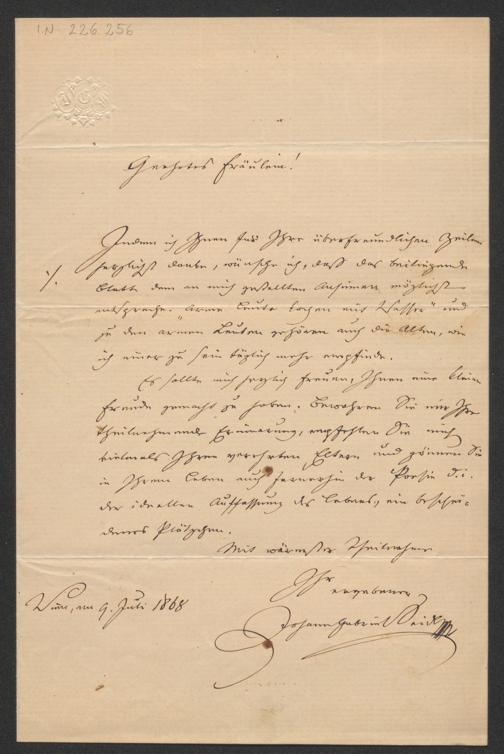 I.N. 226.256
Geehrtes Fräulein!
Indem ich Ihnen für Ihre überfreundlichen Zeilen
herzlichst danke, wünsche ich, daß das beiliegende
Blatt dem an mich gestellten Ansinnen möglichst
entspreche. „Arme Leute kochen mit Wasser" und
zu den armen Leuten gehören auch die Alten, wie
ich einer zu sein täglich mehr empfinde.
Es sollte mich herzlich freuen, Ihnen eine kleine
Freude gemacht zu haben. Bewahren Sie mir Ihre
theilnehmende Erinnerung, empfehlen Sie mich
vielmals Ihren verehrten Eltern und gönnen Sie
in Ihrem Leben auch fernerhin der Poesie d. i.
der ideellen Auffassung des Lebens, ein beschei-
denes Plätzchen.
Mit wärmster Theilnahme
Ihr
ergebener
Johann Gabriel Seidl
Wien, am 9. Juli 1868